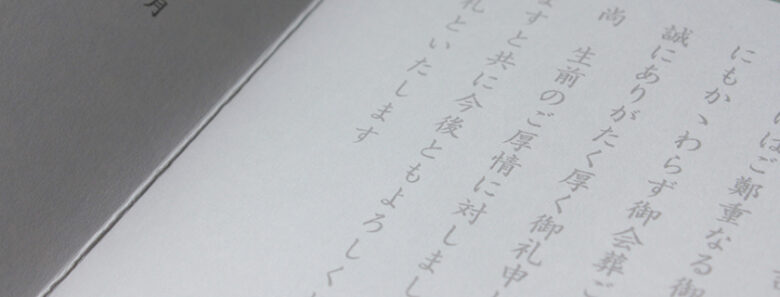 はご鄭重なる御
にもかゝわらず御会葬ご
誠にありがたく厚く御礼申
尚　生前のご厚情に対しまし
ますと共に今後ともよろしく
礼といたします
月